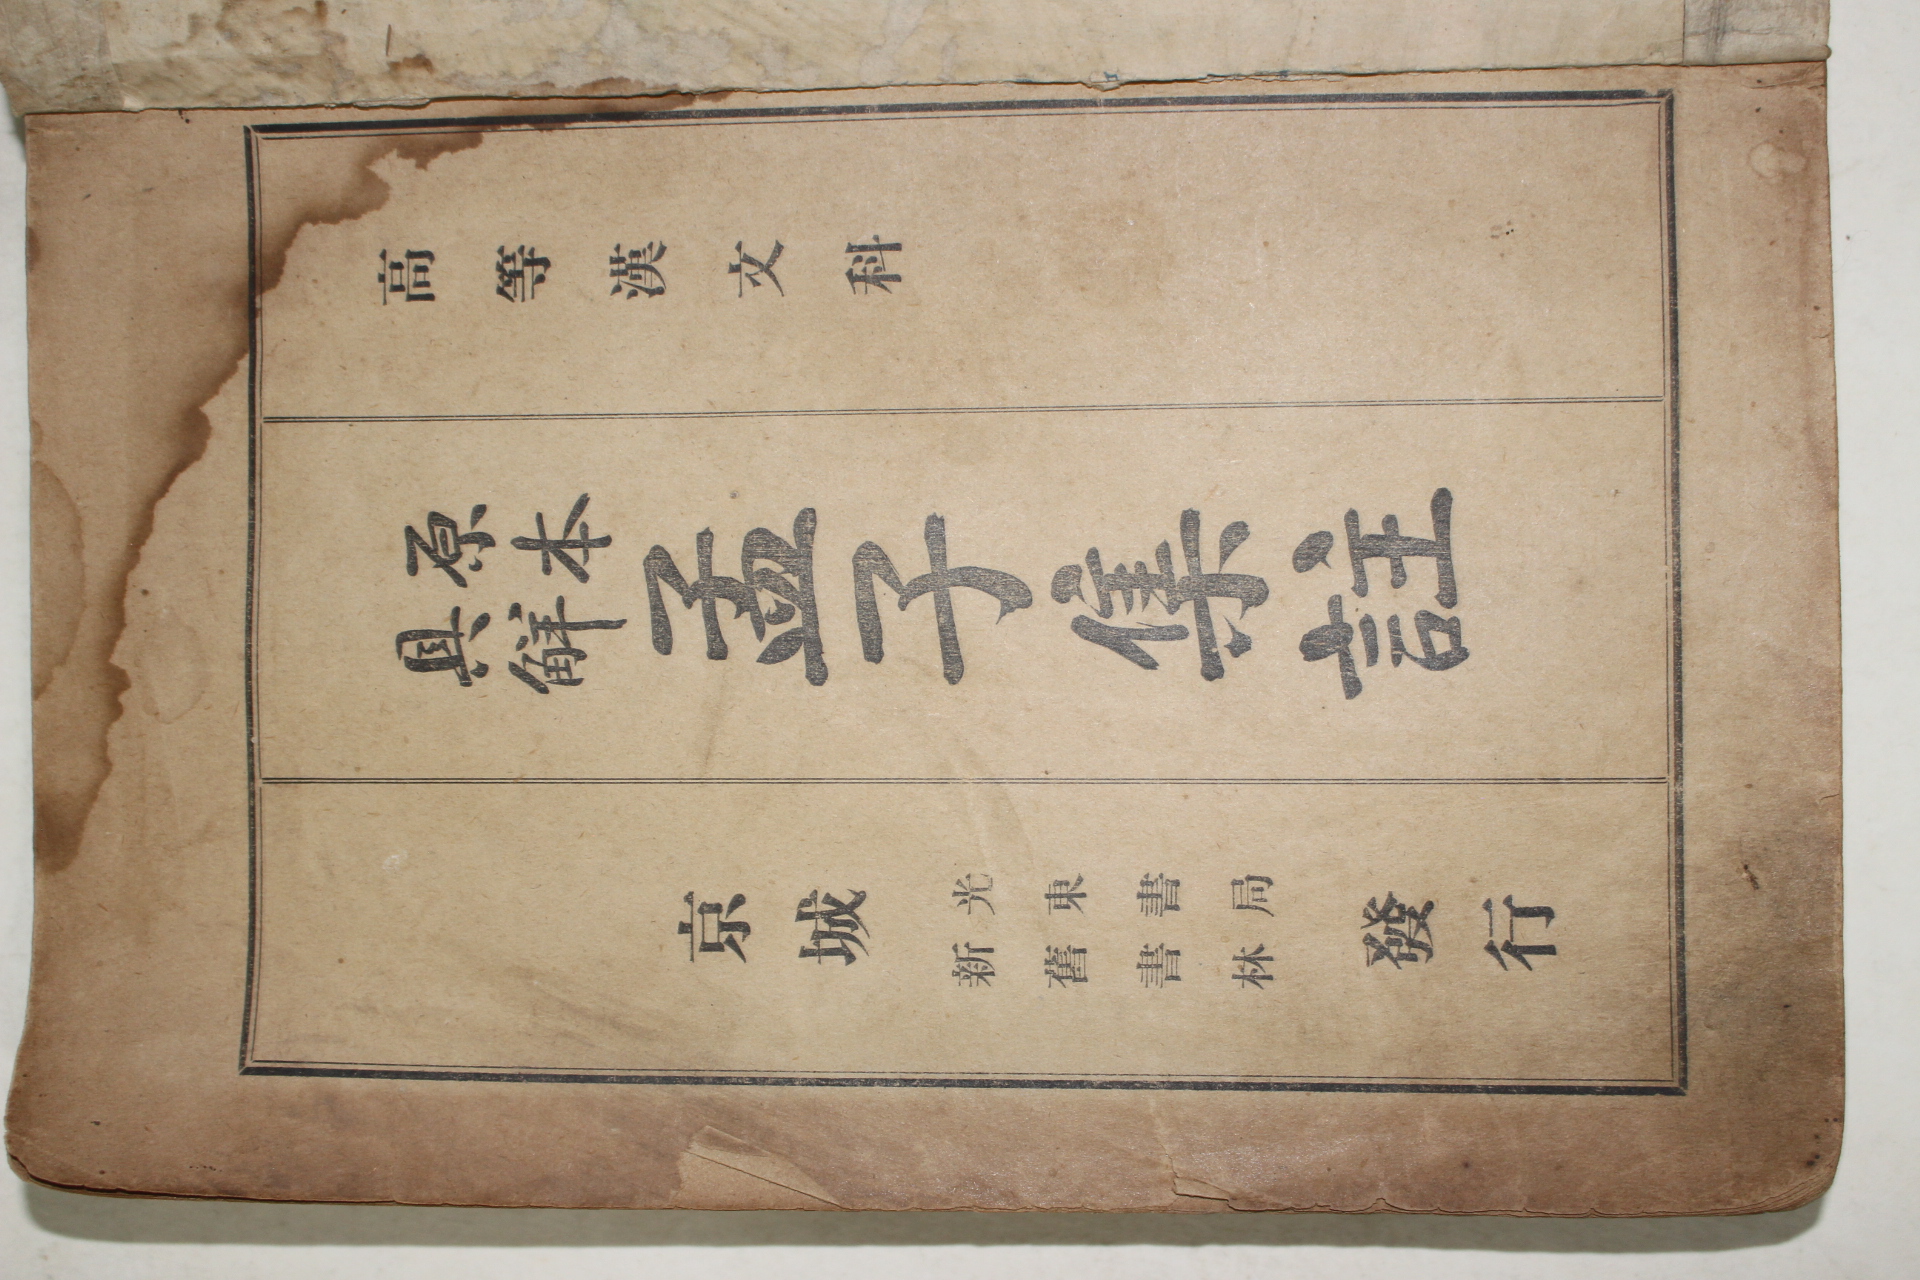 高等漢文科
原本
具解
孟子集註
京城
光東書局
新舊書林
發行